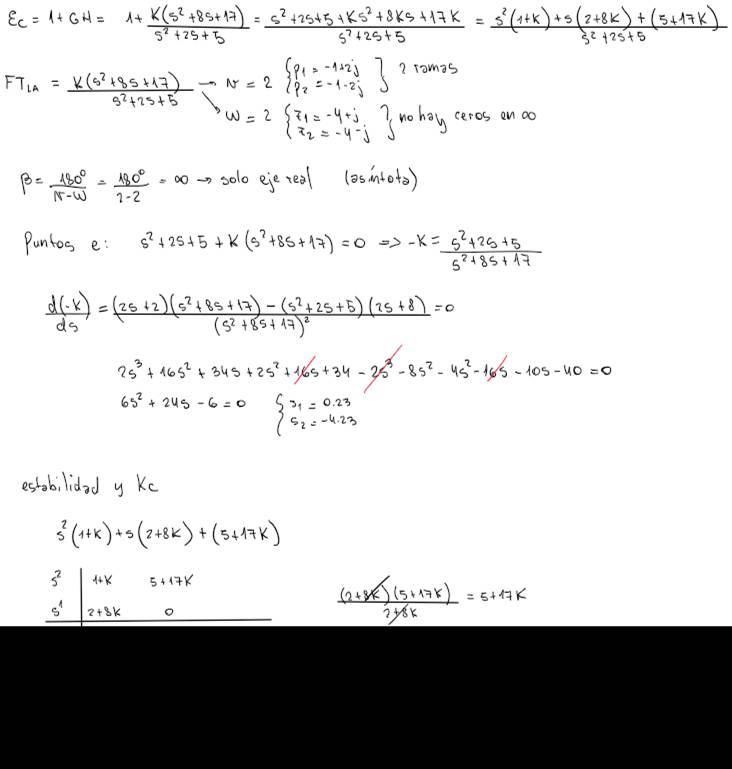 Ec = 1 + GH = 1 + K(s²+8s+17)/(s²+2s+5) = (s²+2s+5+Ks²+8Ks+17K)/(s²+2s+5) = (s²(1+K)+s(2+8K)+(5+17K))/(s²+2s+5)
FT_LA = K(s²+8s+17)/(s²+2s+5) → N = 2 { p1 = -1+2j
p2 = -1-2j } 2 ramas
↘ W = 2 { z1 = -4+j
z2 = -4-j } no hay ceros en ∞
β = 180°/(N-W) = 180°/(2-2) = ∞ → solo eje real (asíntota)
Puntos e: s²+2s+5+K(s²+8s+17) = 0 => -K = (s²+2s+5)/(s²+8s+17)
d(-K)/ds = ((2s+2)(s²+8s+17) - (s²+2s+5)(2s+8))/(s²+8s+17)² = 0
2s³+16s²+34s+2s²+16s+34-2s³-8s²-4s²-16s-10s-40 = 0
6s²+24s-6 = 0 { s1 = 0.23
s2 = -4.23
estabilidad y Kc
s²(1+K)+s(2+8K)+(5+17K)
s² | 1+K 5+17K
s¹ | 2+8K 0
(2+8K)(5+17K)/(2+8K) = 5+17K